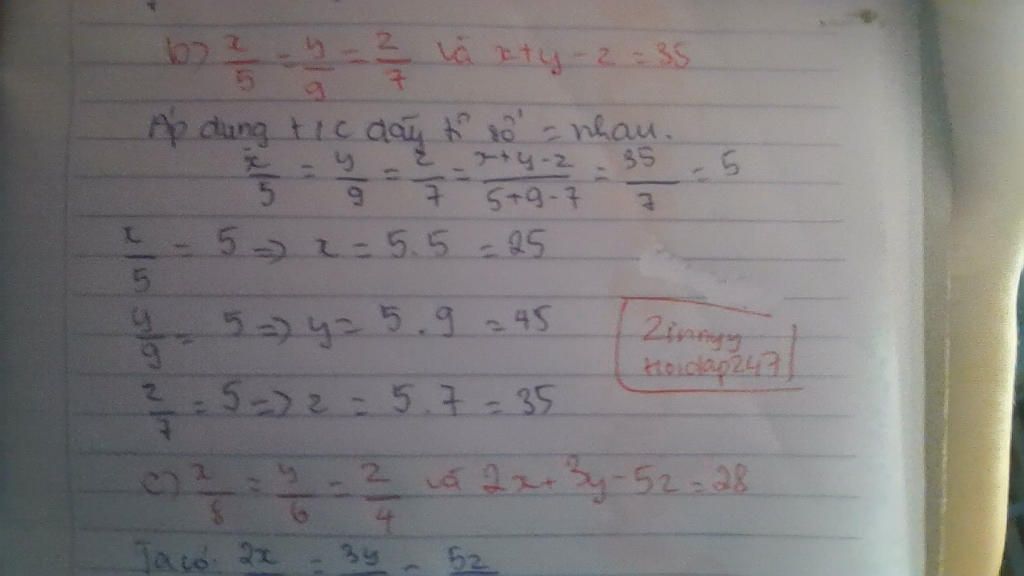 b) x/5 = y/9 = z/7 và x+y-z = 35
Áp dụng t/c dãy tỉ số = nhau.
x/5 = y/9 = z/7 = x+y-z/5+9-7 = 35/7 = 5
x/5 = 5 => x = 5.5 = 25
y/9 = 5 => y = 5.9 = 45
z/7 = 5 => z = 5.7 = 35
Zinnyy
Hoidap247
c) x/8 = y/6 = z/4 và 2x+3y-5z = 28
Ta có: 2x = 3y = 5z